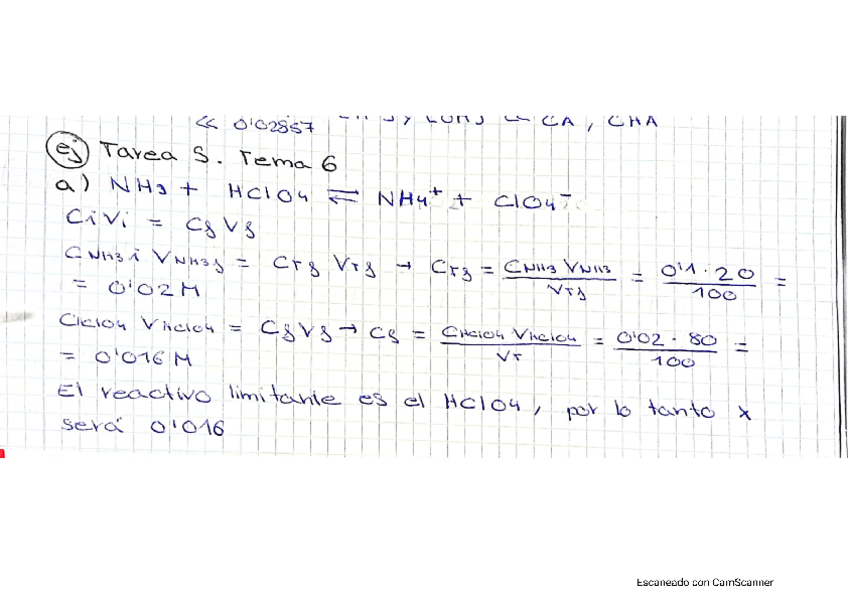 << 0'02857 CA, CHA
ej Tarea 5. Tema 6
a) NH3 + HClO4 ⇌ NH4+ + ClO4-
CiVi = CfVf
CNH3i VNH3f = CTf VTf → CTf = CNH3 VNH3 / VTf = 0'1 · 20 / 100 =
= 0'02M
CHClO4 VHClO4 = CfVf → Cf = CHClO4 VHClO4 / VT = 0'02 · 80 / 100 =
= 0'016M
El reactivo limitante es el HClO4, por lo tanto x
será 0'016
Escaneado con CamScanner